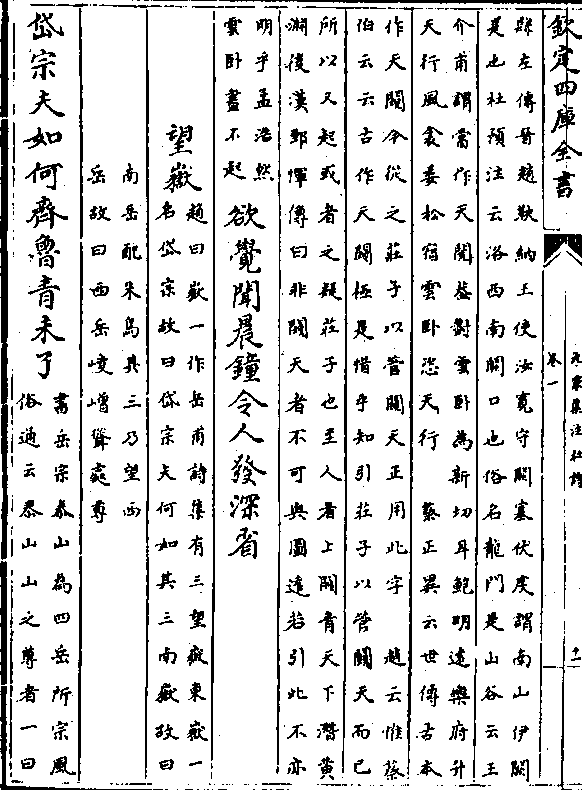 欽定四庫全書
九家集注杜詩
卷一
十一
縣左傳晉趙鞅納王使汝寛守闕塞伏䖍謂南山伊闕
是也杜預注云洛西南闕口也俗名龍門是山谷云王
介甫謂當作天閱蓋對雲卧為新切耳鮑明逺樂府升
天行風飡委松宿雲卧恣天行 蔡正異云世傳古本
作天闚今從之莊子以管闚天正用此字 趙云惟蔡
伯云云古作天闚極是惜乎知引莊子以管闚天而已
所以又起或者之疑莊子也至人者上闚青天下潛黄
淵後漢郅惲傳曰非闚天者不可與圖逺若引此不亦
明乎孟浩然
雲卧晝不起
欲覺聞晨鐘令人發深省
望嶽
趙曰嶽一作岳甫詩集有三望嶽東嶽一
名岱宗故曰岱宗夫何如其三南嶽故曰
南岳配朱鳥其三乃望西
岳故曰西岳崚嶒竦處尊
岱宗夫如何齊魯青未了
書岳宗泰山為四岳所宗風
俗通云泰山山之尊者一曰